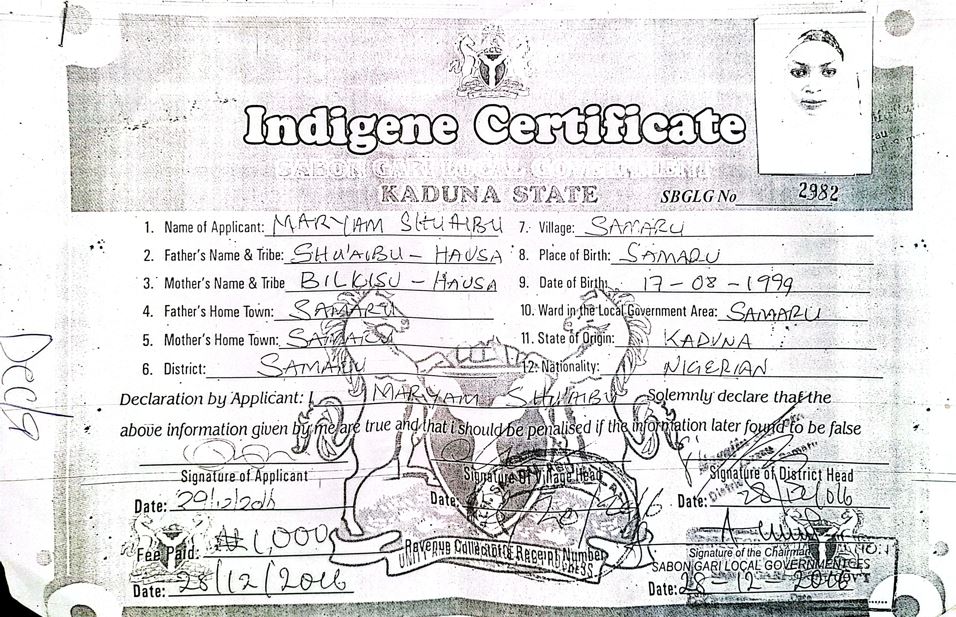 Indigene Certificate
SABON GARI LOCAL GOVERNMENT
KADUNA STATE
SBGLG No 2982
1. Name of Applicant: MARYAM SHUAIBU
7. Village: SAMARU
2. Father's Name & Tribe: SHU'AIBU - HAUSA
8. Place of Birth: SAMARU
3. Mother's Name & Tribe BILKISU - HAUSA
9. Date of Birth: 17-08-1999
4. Father's Home Town: SAMARU
10. Ward in the Local Government Area: SAMARU
5. Mother's Home Town: SAMARU
11. State of Origin: KADUNA
6. District: SAMARU
12. Nationality: NIGERIAN
Declaration by Applicant: I, MARYAM SHU'AIBU Solemnly declare that the
above information given by me are true and that i should be penalised if the information later found to be false
Signature of Applicant
Signature of Village Head
Signature of District Head
Date:
Date:
Date: 28/12/2016
Fee Paid: ₦1,000
Revenue Collector's Receipt Number
Signature of the Chairman
SABON GARI LOCAL GOVERNMENT
Date: 28/12/2016
Date: 28-12-2016